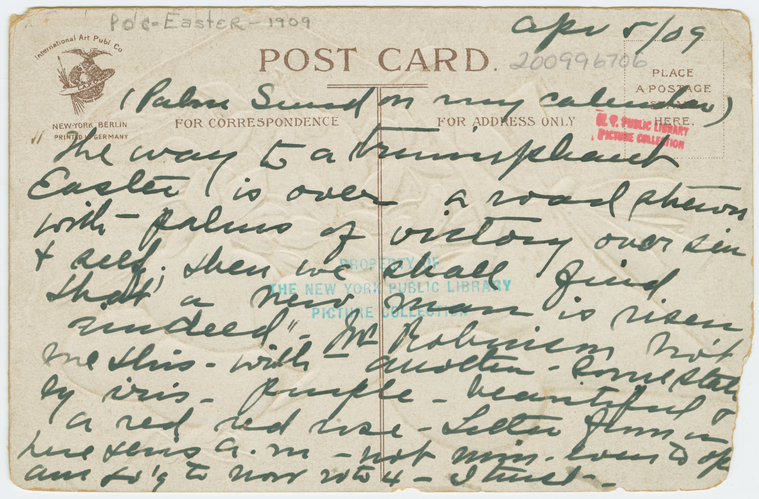 Pdc-Easter-1909
Apr 5/09
International Art Publ. Co.
POST CARD.
200996706
PLACE
A POSTAGE
HERE.
(Palm Sund on my calendar)
NEW-YORK, BERLIN
PRINTED IN GERMANY
FOR CORRESPONDENCE
FOR ADDRESS ONLY
N. Y. PUBLIC LIBRARY
PICTURE COLLECTION
"The way to a triumphant
Easter is over a road strewn
with - palms of victory over sin
& self, then we shall find
PROPERTY OF
THE NEW YORK PUBLIC LIBRARY
PICTURE COLLECTION
that a new man is risen
indeed" - Mr Robinson
me this - with - another - some
iris - purple - beautiful &
a red red rose - Letter from
here this a.m. - not
am to now - I trust -